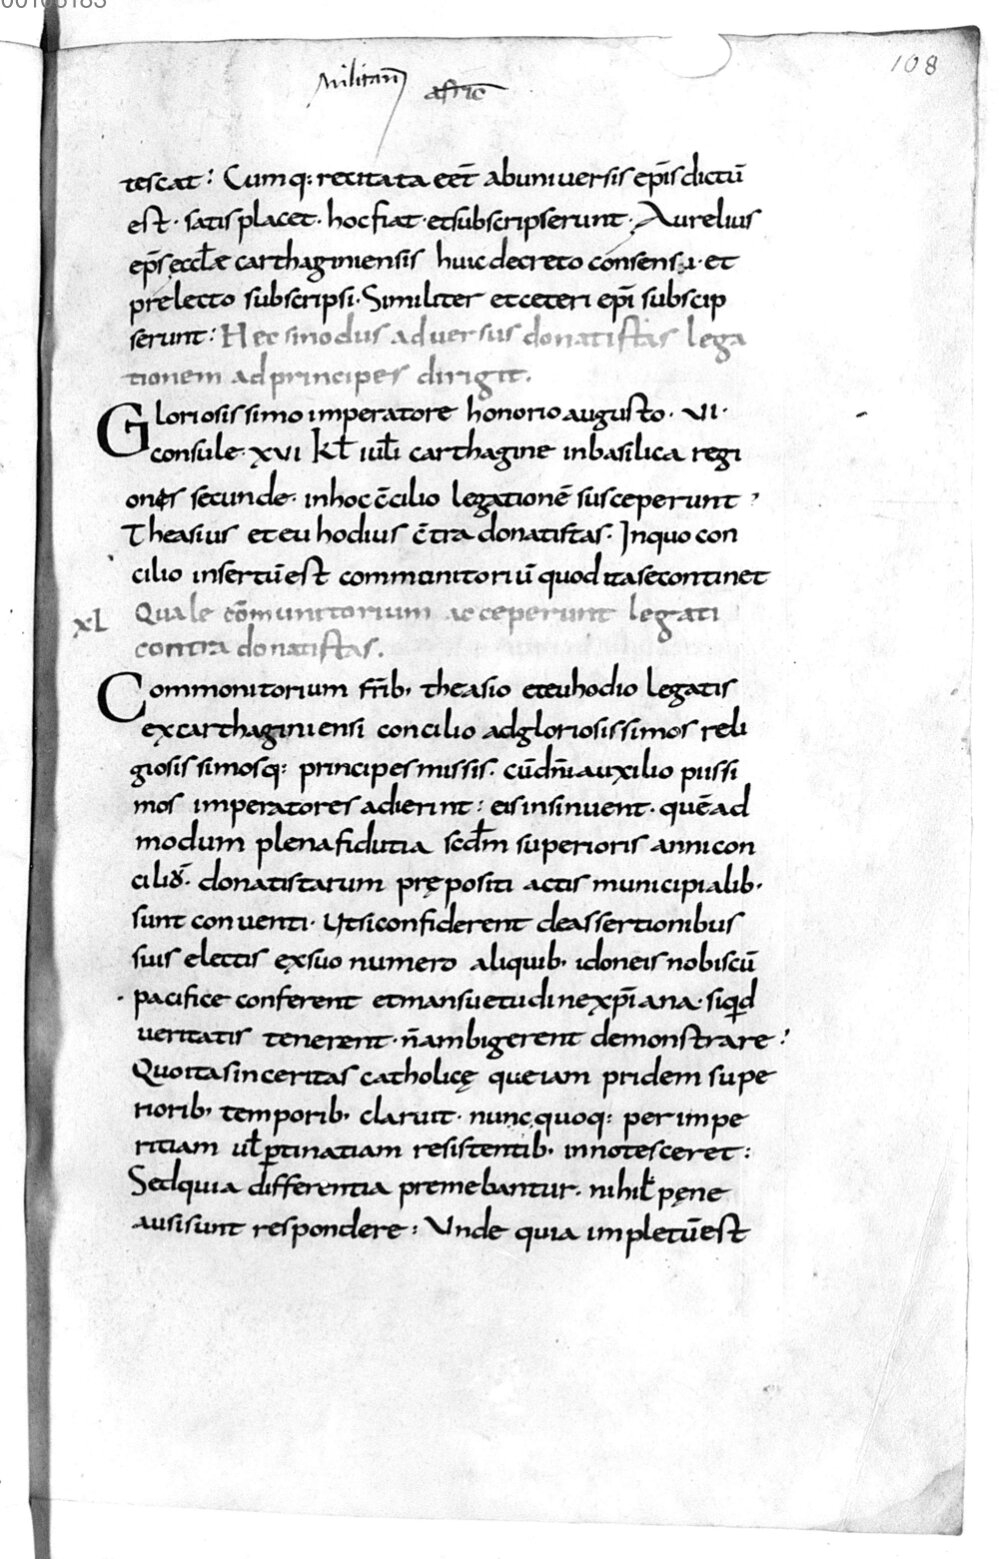 108
Militan̄
afric̄
tescat: Cumq: recitata eēt abuniuersis ep̄is dictū
est· satis placet· hoc fiat· et subscripserunt· Aurelius
ep̄s eccłæ carthaginiensis huic decreto consensi· et
prelecto subscripsi· Similiter et ceteri ep̄i subscip
serunt: Hec sinodus aduersus donatistas lega
tionem ad principes dirigit.
Gloriosissimo imperatore honorio augusto· VI·
consule· XVI kł iułi carthagine in basilica regi
ones secunde· in hoc c̄cilio legationē susceperunt
Theasius et euhodius c̄tra donatistas· In quo con
cilio insertū est commonitoriū quod ita se continet
xl Quale cōmunitorium acceperunt legati
contra donatistas.
Commonitorium fr̄ib; theasio et euhodio legatis
ex carthaginiensi concilio ad gloriosissimos reli
giosissimosq: principes missis· cū dn̄i auxilio piissi
mos imperatores adierint: eis insinuent· quē ad
modum plena fidutia scd̄m superioris anni con
ciliū· donatistarum prępositi actis municipialib;
sunt conuenti· Ut si confiderent de assertionibus
suis electis ex suo numero aliquib; idoneis nobiscū
pacifice conferent et mansuetudine xp̄iana· siqid
ueritatis tenerent· n̄ ambigerent demonstrare:
Quo ita sinceritas catholicę que iam pridem supe
riorib; temporib; claruit· nunc quoq: per impe
ritiam uł ꝑtinatiam resistentib; innotesceret:
Sed quia differentia premebantur· nihil pęne
ausi sunt respondere: Unde quia impletū est